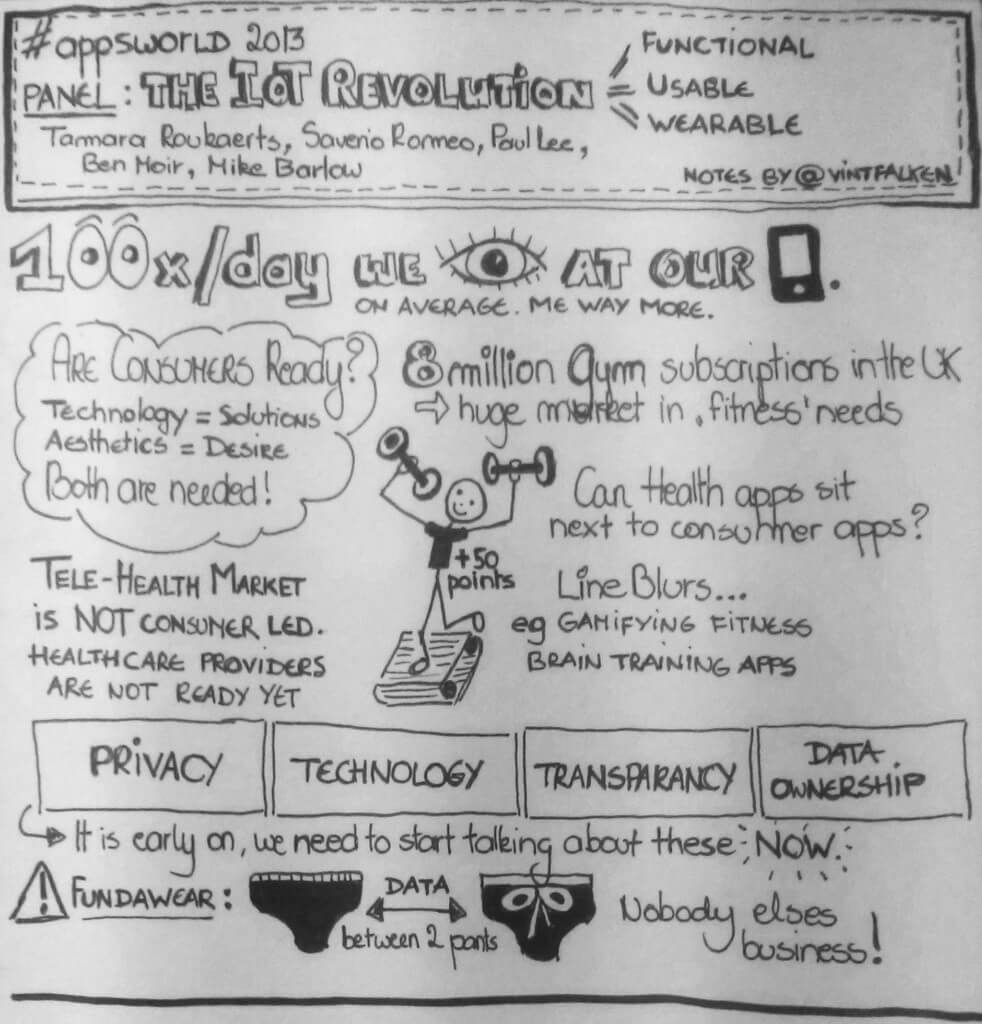 #appsworld 2013
PANEL: THE IOT REVOLUTION
FUNCTIONAL
USABLE
WEARABLE
Tamara Roukaerts, Saverio Romeo, Paul Lee,
Ben Moir, Mike Barlow
NOTES BY @VINTFALKEN
100x/day WE AT OUR .
ON AVERAGE. ME WAY MORE.
ARE CONSUMERS Ready?
Technology = Solutions
Aesthetics = DESIRE
Both are needed!
8 million Gym subscriptions in the UK
⇨ huge market in ‚fitness' needs
Can Health apps sit
next to consumer apps?
+50
points
Line Blurs...
eg GAMIFYING FITNESS
BRAIN TRAINING APPS
TELE-HEALTH MARKET
is NOT CONSUMER LED.
HEALTHCARE PROVIDERS
ARE NOT READY YET
PRIVACY
TECHNOLOGY
TRANSPARANCY
DATA
OWNERSHIP
It is early on, we need to start talking about these NOW.
! FUNDAWEAR:
DATA
between 2 pants
Nobody elses
business!